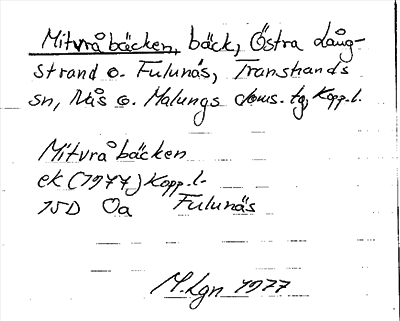 Mitvråbäcken, bäck, Östra Lång-
strand o. Fulunäs, Transtrands
sn, Nås o. Malungs doms. tg, Kopp.l.
Mitvråbäcken
ek (1977) Kopp.l.
15D 0a Fulunäs
M.Lgn 1977